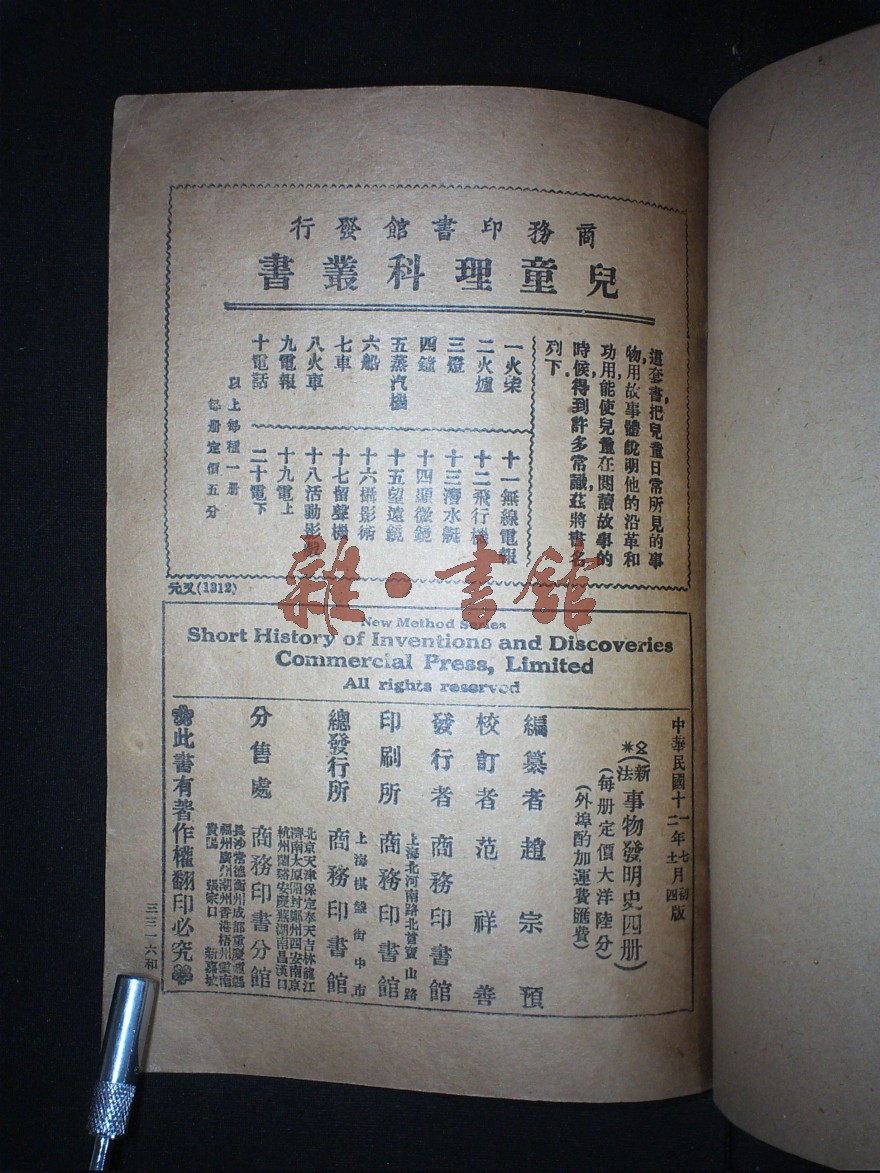 商務印書館發行
兒童理科叢書
這套書,把兒童日常所見的事
物,用故事體說明他的沿革和
功用,能使兒童在閱讀故事的
時候,得到許多常識,茲將書名
列下.
一火柴
二火爐
三燈
四鐘
五蒸汽機
六船
七車
八火車
九電報
十電話
十一無線電報
十二飛行機
十三潛水艇
十四顯微鏡
十五望遠鏡
十六攝影術
十七留聲機
十八活動影
十九電上
二十電下
以上每種一册
每册定價五分
元又(1312)
雜·書館
New Method Series
Short History of Inventions and Discoveries
Commercial Press, Limited
All rights reserved
中華民國十一年七月初版
二年十一四
(新法)事物發明史四册)
(每册定價大洋陸分)
(外埠酌加運費匯費)
編纂者 趙宗預
校訂者 范祥善
發行者 商務印書館
上海北河南路北首寶山路
印刷所 商務印書館
上海棋盤街中市
總發行所 商務印書館
北京天津保定奉天吉林龍江
濟南太原開封鄭州西安南京
杭州蘭谿安慶蕪湖南昌漢口
分售處 商務印書分館
長沙常德衡州成都重慶瀘縣
福州廣州潮州香港梧州雲南
貴陽 張家口 新嘉坡
此書有著作權翻印必究
三三一六和